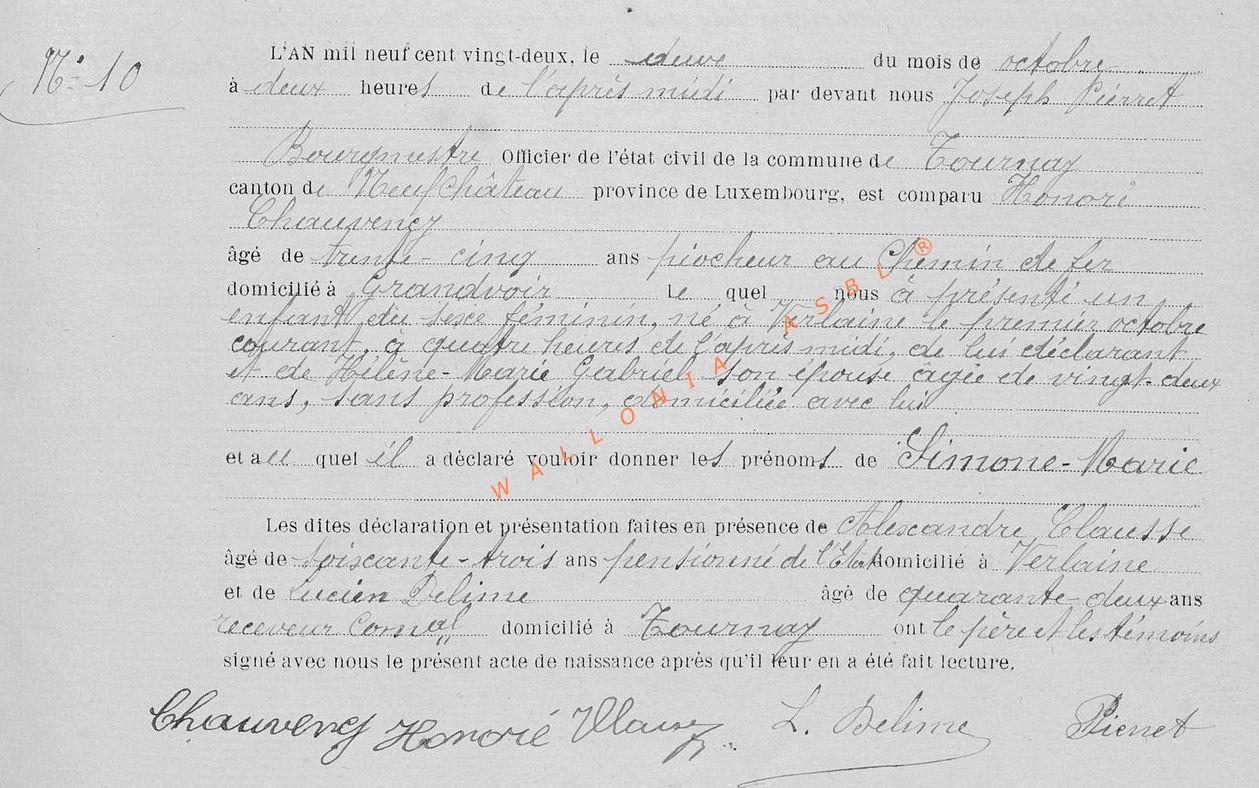 N° 10
L'AN mil neuf cent vingt-deux, le deux du mois de octobre
à deux heures de l'après midi par devant nous Joseph Pierret
Bourgmestre Officier de l'état civil de la commune de Tournay
canton de Neufchâteau province de Luxembourg, est comparu Honoré
Chauvency
âgé de trente-cinq ans piocheur au Chemin de fer
domicilié à Grandvoir le quel nous à présenté un
enfant du sexe féminin, né à Verlaine le premier octobre
courant, à quatre heures de l'après midi, de lui déclarant
et de Hélène-Marie Gabriel, son épouse agée de vingt-deux
ans, sans profession, domiciliée avec lui
et au quel il a déclaré vouloir donner les prénoms de Simone-Marie
Les dites déclaration et présentation faites en présence de Alexandre Clausse
âgé de soixante-trois ans pensionné de l'Etat domicilié à Verlaine
et de Lucien Delime âgé de quarante-deux ans
receveur Comal domicilié à Tournay ont le père et les témoins
signé avec nous le présent acte de naissance après qu'il leur en a été fait lecture.
Chauvency Honoré L. Delime Pierret
WALLONIA ASBL ®